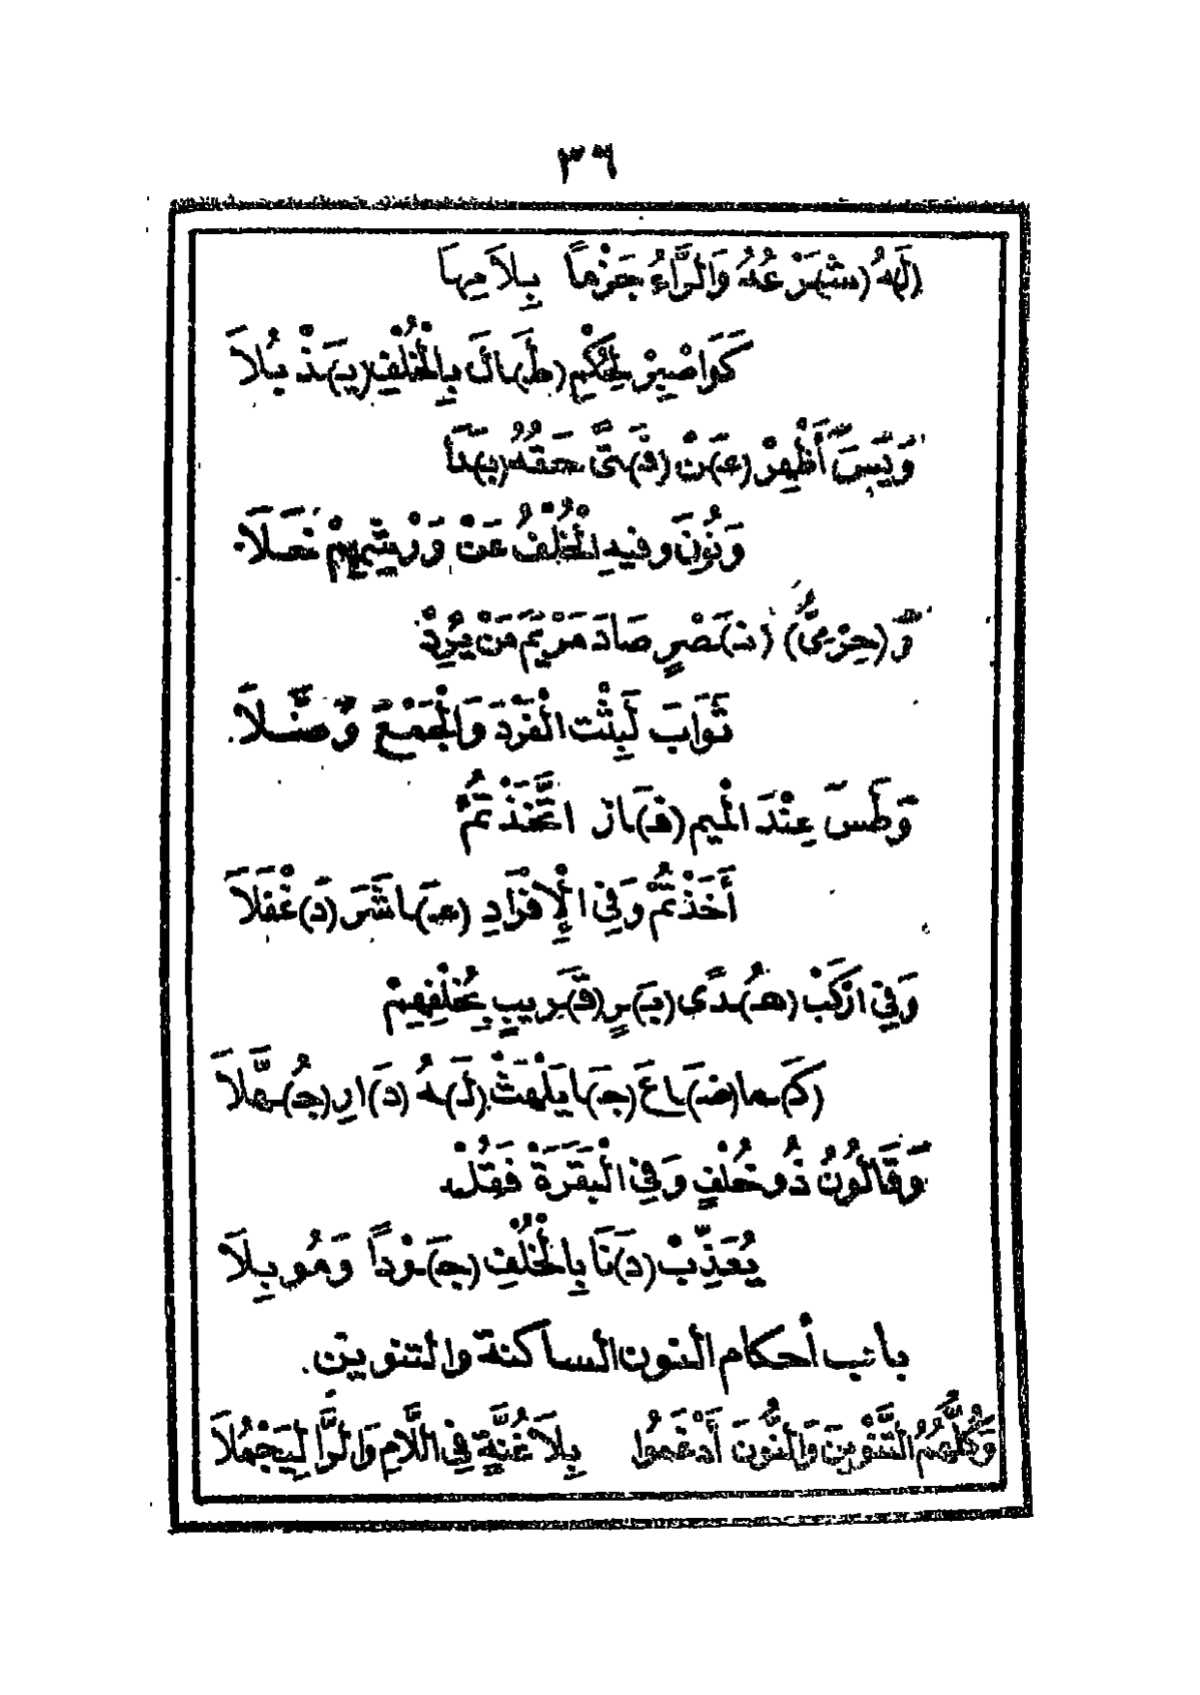 ٣٦
(لَهُ (شَ)رْعُهُ وَالرَّاءُ جَزْمًا بِلاَمِهَا
كَوَاصْبِرْ لِحُكْمِ (طَـ)ـالَ بِالْخُلْفِ (يَـ)ـذْبُلاَ
وَيٰسٓ أَظْهِرْ (عَـ)ـنْ (فَـ)ـتًى حَقُّهُ (بَـ)ـدَا
وَنُونَ وَفِيهِ الْخُلْفُ عَنْ وَرْشِهِمْ خَلاَ
وَ(حِرْمِىُّ) (نَـ)ـصْرٍ صَادَ مَرْيَمَ مَنْ يُرِدْ
ثَوَابَ لَبِثْتَ الْفَرْدَ وَالْجَمْعَ وَصَّلاَ
وَطَسَ عِنْدَ الْمِيمِ (فَـ)ـازَ اتَّخَذْتُمُ
أَخَذْتُمْ وَفِي الْإِفْرَادِ (عَـ)ـاشَرَ (دَ)غْفَلاَ
وَفِي ارْكَبْ (هُـ)ـدًى (بَـ)ـرٍ (قَـ)ـرِيبٍ بِخُلْفِهِمْ
(كَـ)ـمَا (ضَـ)ـاعَ (جَـ)ـا يَلْهَثْ (لَـ)ـهُ (دَ)ارِ (جُـ)ـهَّلاَ
وَقَالُونُ ذُو خُلْفٍ وَفِي الْبَقَرَةْ فَقُلْ
يُعَذِّبْ (دَ)نَا بِالْخُلْفِ (جَـ)ـوْدًا وَمُوبِلاَ
باب أحكام النون الساكنة والتنوين.
وَكُلُّهُمُ التَّنْوِينَ وَالنُّونَ أَدْغَمُوا بِلاَ غُنَّةٍ فِي اللاَّمِ وَالرَّا لِيَجْمُلاَ